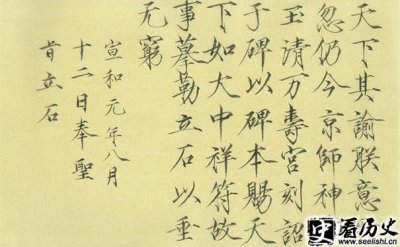 天下其諭朕意
忽仍今京師神
玉清万壽宮刻詔
于碑以碑本賜天
下如大中祥符故
事摹勒立石以垂
无窮
宣和元年八月
十二日奉聖
旨立石
看历史
www.seelishi.cn